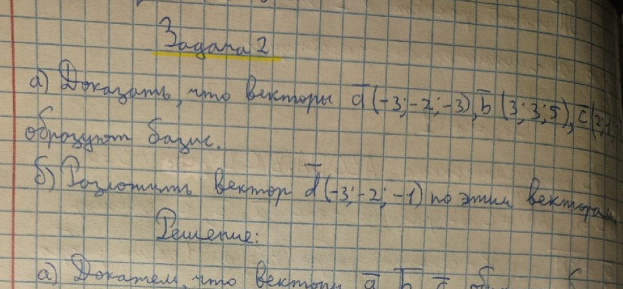 Задача 2
а) Доказать, что векторы a (-3; -2; -3), b (3; 3; 5), c (2; 2;
образуют базис.
б) Разложить вектор d (-3; -2; -1) по этим векторам
Решение:
а) Докажем, что векторы a b c